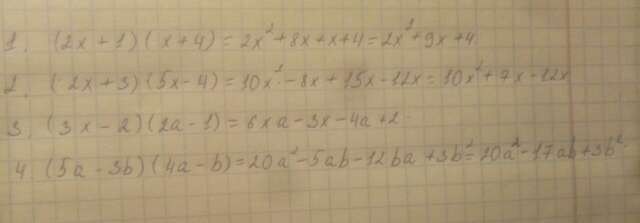 1. (2x + 1)(x + 4) = 2x² + 8x + x + 4 = 2x² + 9x + 4
2. (2x + 3)(5x - 4) = 10x² - 8x + 15x - 12x = 10x² + 7x - 12x
3. (3x - 2)(2a - 1) = 6xa - 3x - 4a + 2.
4. (5a - 3b)(4a - b) = 20a² - 5ab - 12ba + 3b² = 20a² - 17ab + 3b²